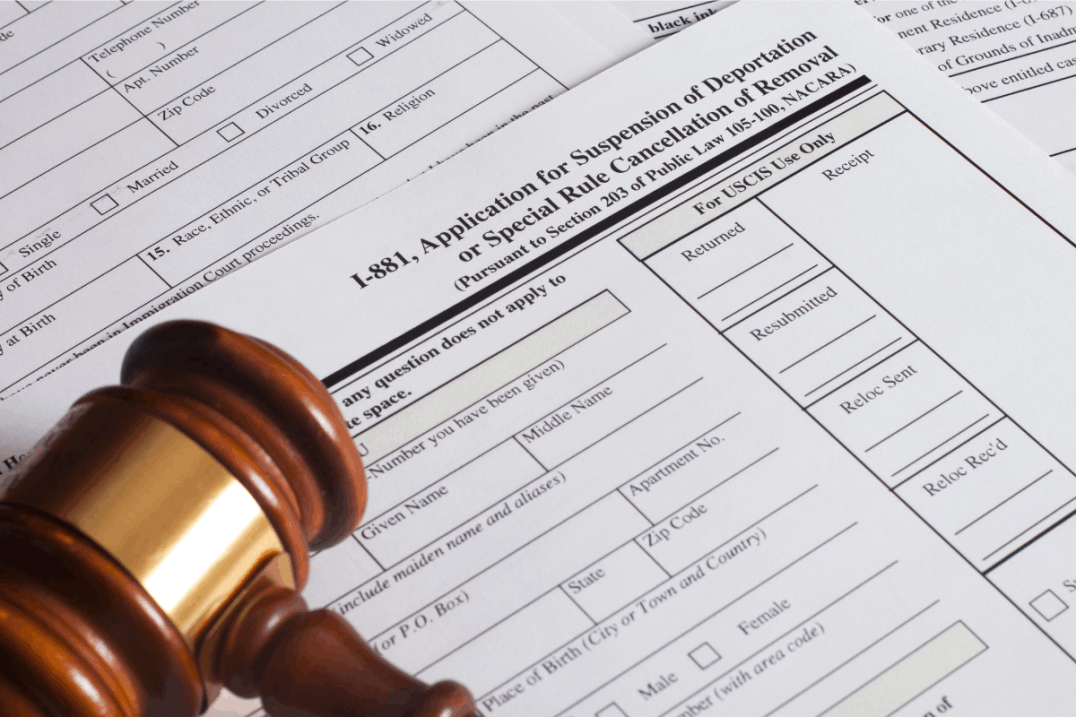 Telephone Number
(          )
Apt. Number
Zip Code
Widowed
Divorced
Married
Single
16. Religion
15. Race, Ethnic, or Tribal Group
of Birth
at Birth
in Immigration Court proceedings.
black ink
for one of the
nent Residence
rary Residence (I-687)
of Grounds of
ove entitled
I-881, Application for Suspension of Deportation
or Special Rule Cancellation of Removal
(Pursuant to Section 203 of Public Law 105-100, NACARA)
any question does not apply to
te space.
For USCIS Use Only
Returned
Receipt
Resubmitted
Reloc Sent
Reloc Rec'd
-Number you have been given)
Given Name
Middle Name
include maiden name and aliases)
(or P.O. Box)
Apartment No.
State
Zip Code
Place of Birth (City or Town and Country)
Male
Female
mber (with area code)
of